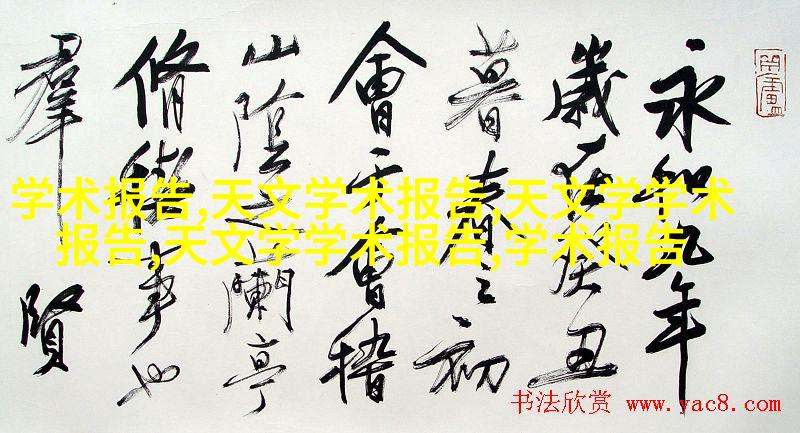 永和九年
歲在癸丑
暮春之初
會于會稽
山陰之蘭亭
脩禊事也
羣賢
学术报告,天文学术报告,天文学学术
报告,天文学学术报告,学术报告
书法欣赏 www.yac8.com